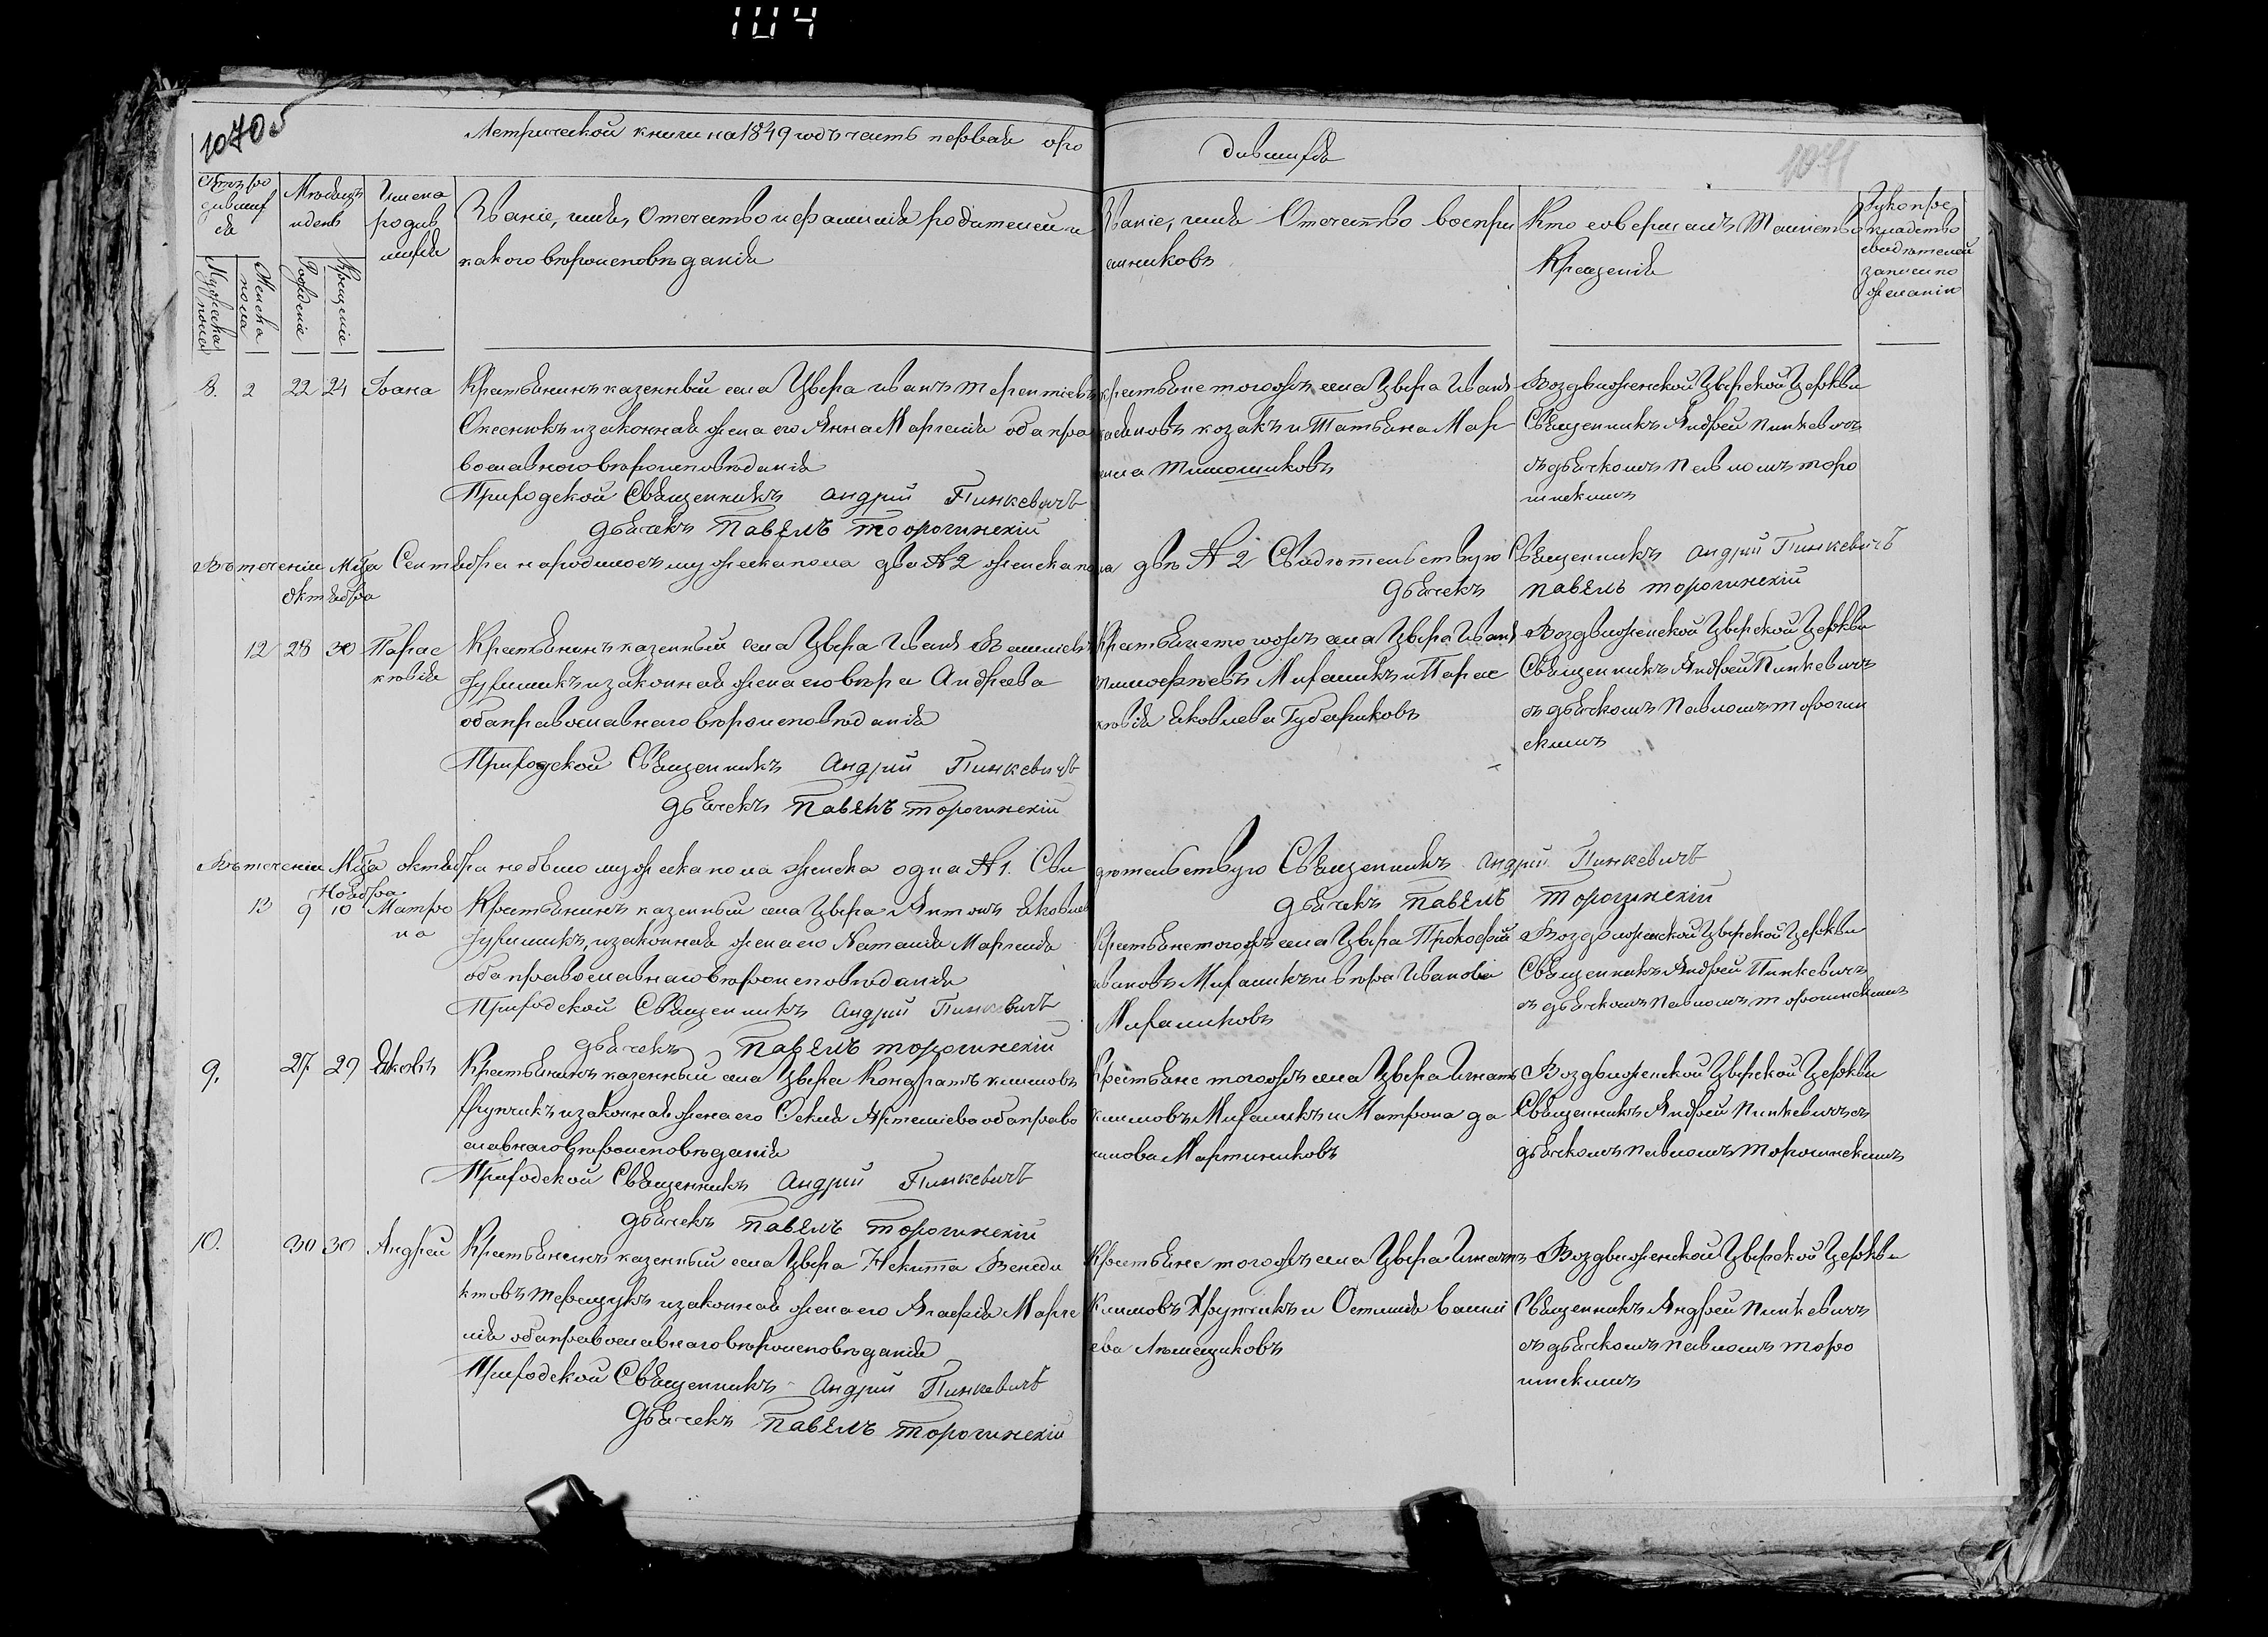 104
1070 об
Метрической книги на 1849 годъ часть первая оро
дившихся
1071
Мѣсяцъ
и день
Имена
родив
шихся
Званіе, имя, Отчество и фамилія родителей и
какого вѣроисповѣданія
Званіе, имя Отчѣство воспрі
емниковъ
Кто совершалъ Таинство
Крещенія
Рукопри
кладство
свидѣтелей
записи по
желанію
Мужеска
пола
Женска
пола
Рожденіе
Крещеніе
8. 2 22 24 Іоана
Крестьянинъ казенный села Цвѣра иванъ терентіевъ
Олесиюкъ и законная жена его Анна Маркиа оба пра
вославного вѣроисповѣданія
Приходской Священникъ Андрій Пинкевичъ
дьячекъ Павелъ торогинскій
крестьяне тогожъ села Цвѣра Иванъ
козакъ и Татьяна Мар
Тимошиковъ
Воздвиженской Цвѣрской Церкви
Священникъ Андрей Пинкевичъ
съ дьячкомъ Павломъ торо
гинскимъ
Въ теченіи Мца Сентября народилось мужеска пола два № 2 женска пола двѣ № 2 Свидѣтельствую Священникъ Андрій Пинкевичъ
дьячекъ Павелъ торогинскій
октября
12 28 30 Парас
кювія
Крестьянинъ казенный села Цвѣра Иванъ Василіевъ
и законная жена его вѣра Андреева
оба православнаго вѣроисповѣданія
Приходской Священникъ Андрій Пинкевичъ
дьячекъ Павелъ торогинскій
Крестьяне тогожъ села Цвѣра Иванъ
тимофѣевъ Михаликъ и Парас
кювія яковлева Губариковъ
Воздвиженской Цвѣрской Церкви
Священникъ Андрей Пинкевичъ
съ дьячкомъ Павломъ торогин
скимъ
Въ теченіи Мца октября не было мужеска пола женска одна № 1. Сви
дѣтельствую Священникъ Андрій Пинкевичъ
дьячекъ Павелъ Торогинскій
Ноября
13 9 10 Матро
на
Крестьянинъ казенный села Цвѣра Антонъ яковлев
и законная жена его Наталія Маркиа
оба православнаго вѣроисповѣданія
Приходской Священникъ Андрій Пинкевичъ
дьячекъ Павелъ торогинскій
Крестьяне тогожъ села Цвѣра Прокофій
ивановъ Михаликъ и вѣра Иванова
Михаликовъ
Воздвиженской Цвѣрской Церкви
Священникъ Андрей Пинкевичъ
съ дьячкомъ Павломъ торогинскимъ
9. 27 29 Яковъ
Крестьянинъ казенный села Цвѣра Кондратъ климовъ
Хрупчикъ и законная жена его Фекла Артеміева оба право
славнаго вѣроисповѣданія
Приходской Священникъ Андрій Пинкевичъ
дьячекъ Павелъ Торогинскій
Крестьяне тогожъ села Цвѣра Игнатъ
климовъ Михаликъ и Матрона да
нилова Мартинчиковъ
Воздвиженской Цвѣрской Церкви
Священникъ Андрей Пинкевичъ съ
дьячкомъ Павломъ Торогинскимъ
10. 30 30 Андрей
Крестьянинъ казенный села Цвѣра Некита Венеди
ктовъ терещукъ и законная жена его Агафія Марке
лія оба православнаго вѣроисповѣданія
Приходской Священникъ Андрій Пинкевичъ
Дьячекъ Павелъ торогинскій
Крестьяне тогожъ села Цвѣра Игнатъ
Климовъ Хрупчикъ и васили
ева
Воздвиженской Цвѣрской Церкви
Священникъ Андрей Пинкевичъ
съ дьячкомъ Павломъ торо
гинскимъ